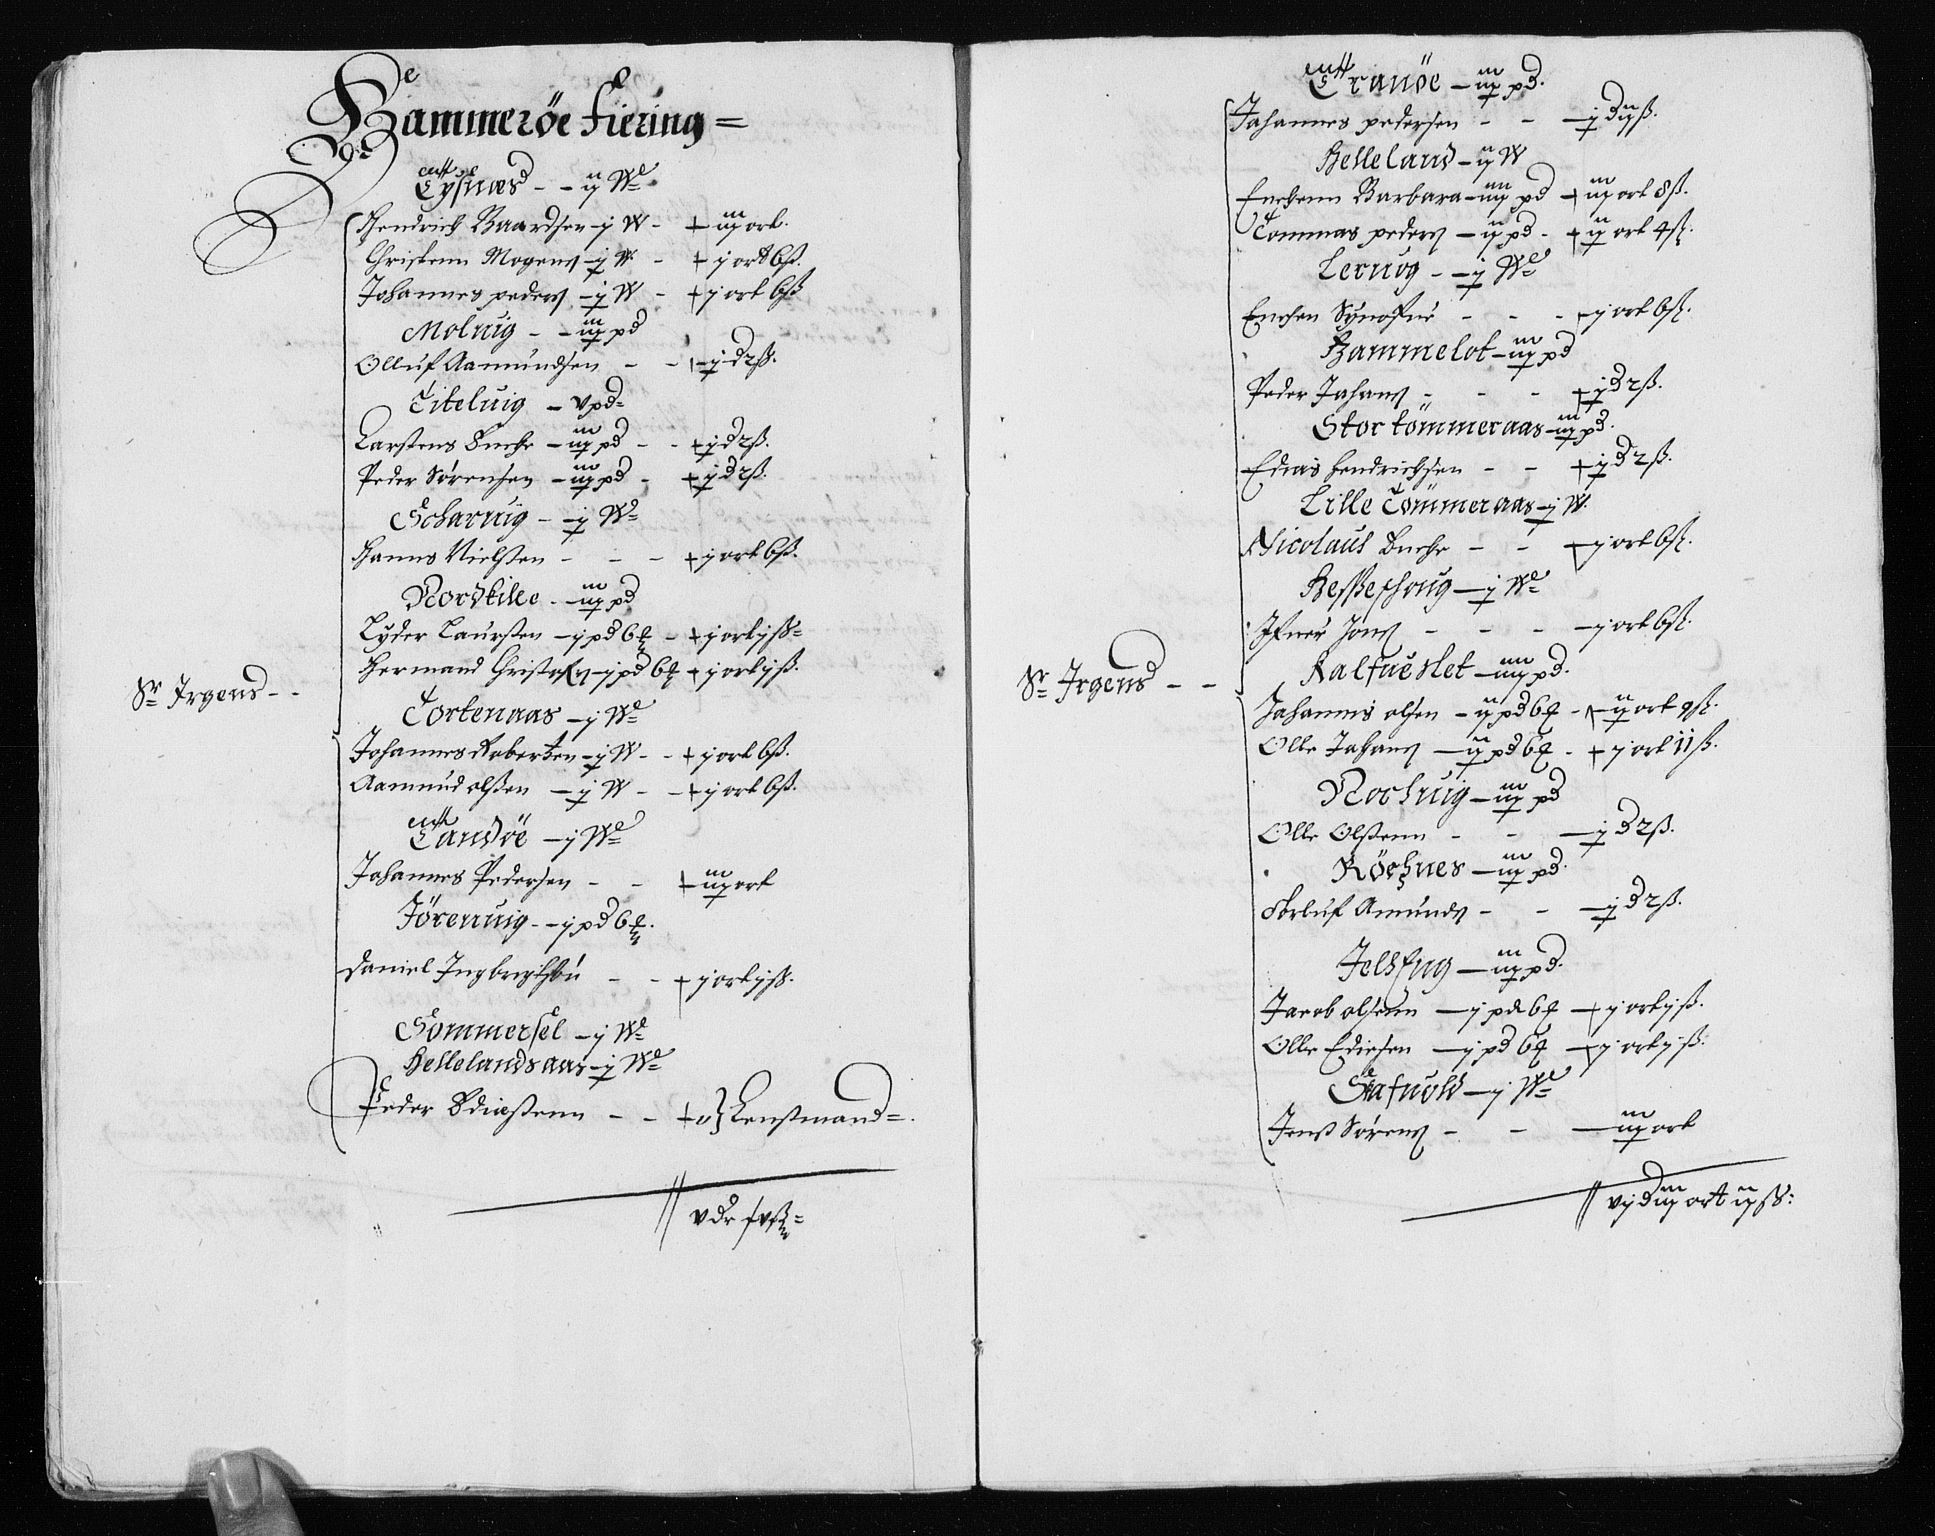 Hammerøe Fiering =
Eysnæs - - ij We
Hendrich Baardsen - j W - + iij ort.
Christenn Mogens - j W - + j ort 6ß.
Johannes peders - j W - + j ort 6ß
Molvig - - iij pd
Olluf Aamundsen - - + j d 2ß.
Titeluig - v pd =
Carstens Enche - iij pd - - + j d 2ß.
Peder Sørensen - iij pd - + j d 2ß.
Scharuig - j We
Hanns Nielssen - - - + j ort 6ß.
Nordkille - iij pd
Lyder Laurssen - j pd 6 - + j ort jß =
Hermand Christofs - j pd 6 + j ort jß.
Sr Irgens - -
Tortenaas - j We
Johannes Robertsen - j W - - + j ort 6ß.
Aamund olssen - j W - - + j ort 6ß.
Landøe - j We
Johannes Pedersen - - + iij ort
Jörenuig - - j pd 6.
Daniel Ingbrigtsön - - + j ort jß.
Sommersel - j We
Hellelandsaas - j We
Peder Ediassenn - - + 0 } Lenssmand =.
v dr
Tranöe - iij pd.
Johannes pedersen - - - j d ijß.
Helleland - ij W
Enchenn Barbara - iiij pd + iij ort 8ß.
Tommas peders - ij pd - + ij ort 4ß.
Leruog - - j We
Enchen Synøfue - - - j ort 6ß.
Hammelot - iij pd
Peder Johans - - - + j d 2ß.
Stor tömmeraas - iij pd.
Edias Hendrichsen - - + j d 2ß.
Lille Tömmeraas - j W.
Nicolaus Enche - - - j ort 6ß.
Hesseschoug - j We
Ifuer Jons - - - - j ort 6ß.
Sr Irgens - -
Kalfueslet - iiij pd.
Johannis olsen - ij pd 6 - + ij ort 9ß.
Olle Johans - ij pd 6 - + j ort 11ß.
Norhuig - iij pd
Olle Olssenn - - - j d 2ß.
Röeshnes - iij pd.
Amunds - - - j d 2ß.
Jelsfug - iij pd.
Jacob olsenn - j pd 6 + j ort jß.
Olle Ediesen - j pd 6 - j ort jß.
Stafuold - j We
Jenß Sørens - - - iij ort
vij d iij ort ijß: